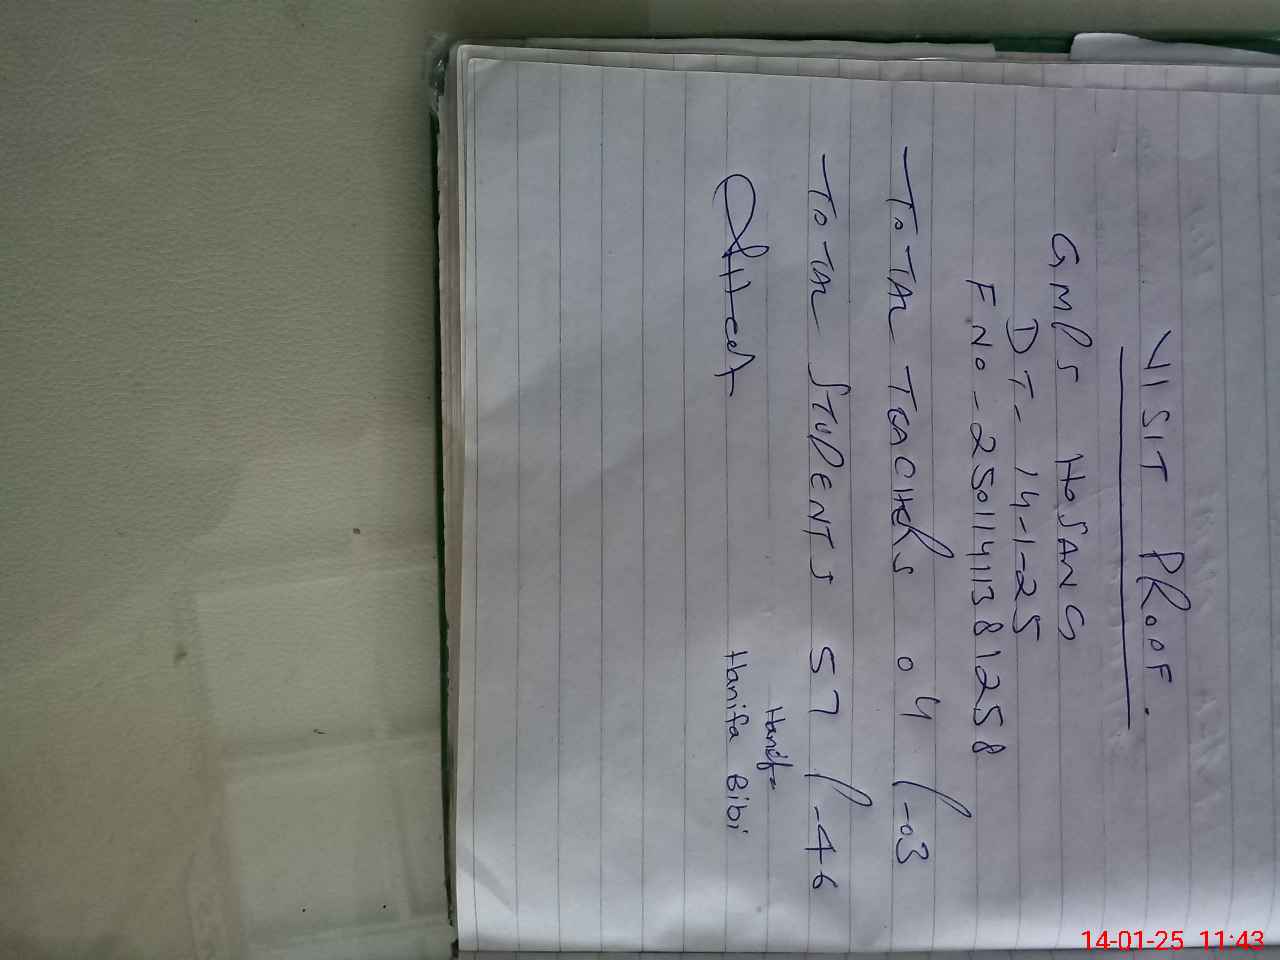 VISIT PROOF.
GMPS HOSANG
DT- 14-1-25
F NO - 25011411381258
TOTAL TEACHERS 04 P-03
TOTAL STUDENTS 57 P-46
Hanifa
Hanifa Bibi
14-01-25 11:43